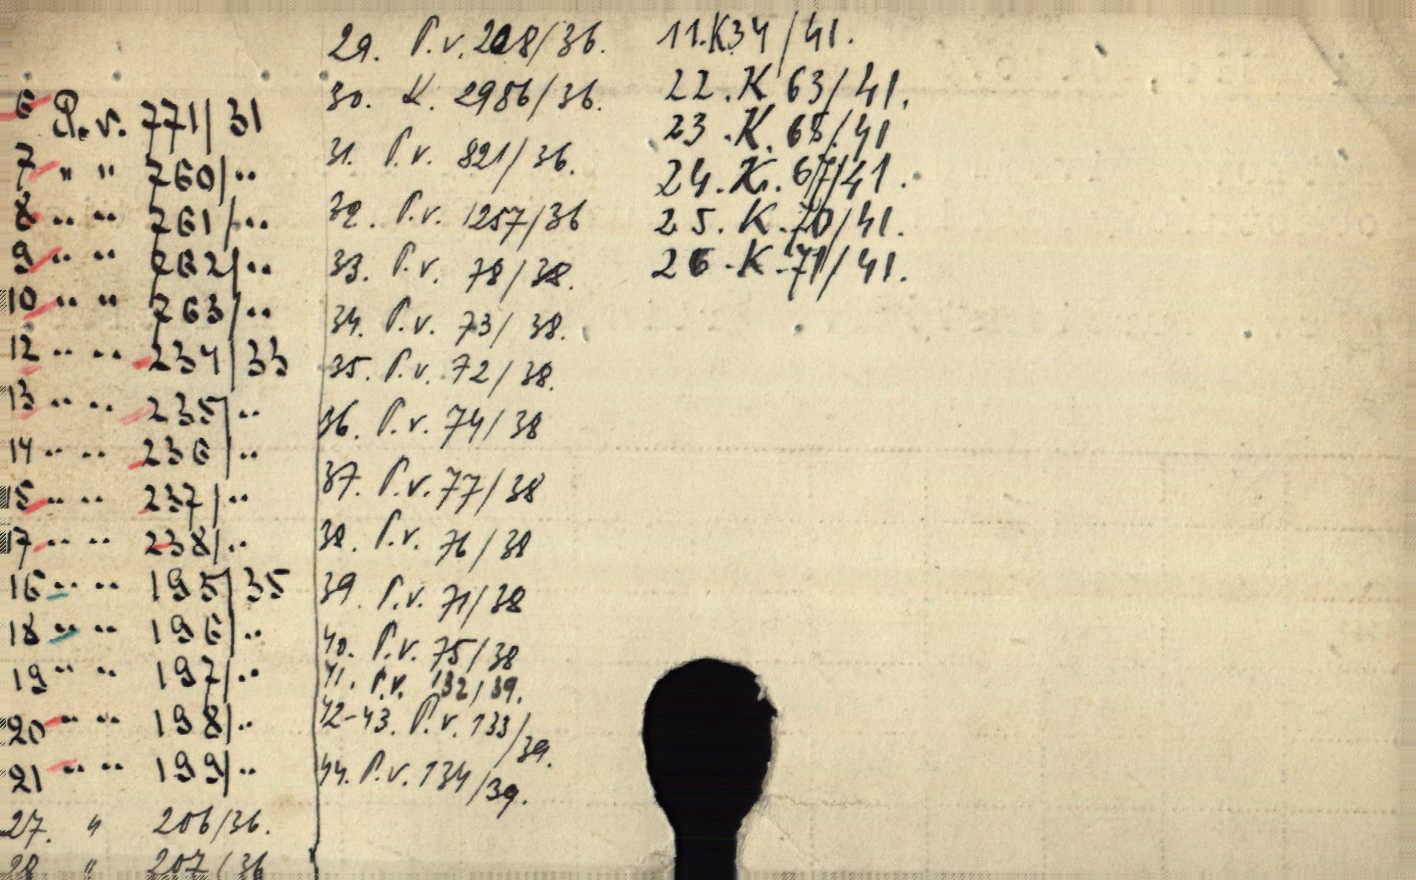 6 P.v. 771/31
7 " " 260/..
8 .. .. 261/...
9 .. .. 262/..
10 .. .. 263/..
12 .. .. 234/33
13 .. .. 235/..
14 .. .. 236/..
15 .. .. 237/..
17 .. .. 238/..
16 .. .. 195/35
18 .. .. 196/..
19 .. .. 197/..
20 .. .. 198/..
21 .. .. 199/..
27. " 206/36.
28 " 207/36
29. P.v. 208/36.
30. K. 2986/36.
31. P.v. 821/36.
32. P.v. 1257/36
33. P.v. 78/38.
34. P.v. 73/38.
35. P.v. 72/38.
36. P.v. 74/38
37. P.v. 77/38
38. P.v. 76/38
39. P.v. 71/38
40. P.v. 75/38
41. P.v. 132/39.
42-43. P.v. 133/39.
44. P.v. 134/39.
11. K34/41.
22. K 63/41.
23. K. 65/41
24. K. 67/41.
25. K. 70/41.
26. K. 71/41.